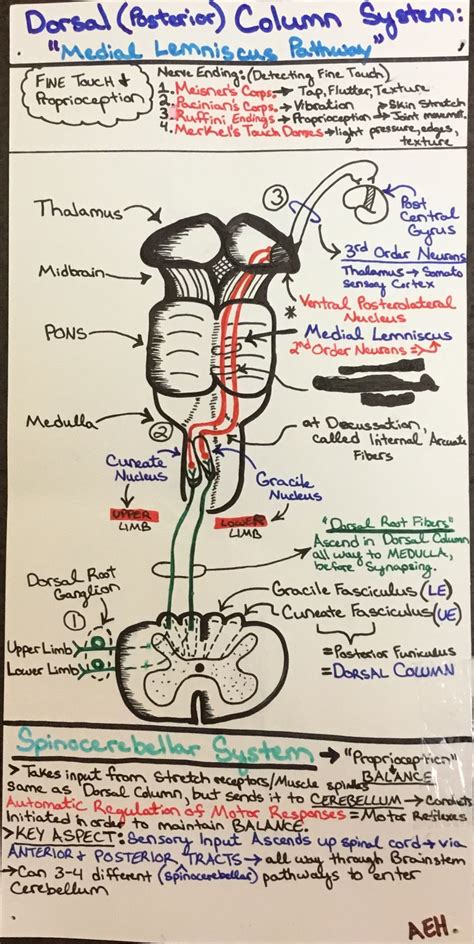 Dorsal (Posterior) Column System:
"Medial Lemniscus Pathway"
FINE TOUCH &
Proprioception
Nerve Endings: (Detecting Fine Touch)
1. Meisner's Corps. → Tap, Flutter, Texture
2. Pacinian's Corps. → Vibration
3. Ruffini Endings → Proprioception → Joint movemt.
Skin Stretch
4. Merkel's Touch Domes → light pressure, edges,
texture
Thalamus
Midbrain
PONS
Medulla
3
Post
Central
Gyrus
3rd Order Neurons
Thalamus → Somato
sensory Cortex
*
Ventral Posterolateral
Nucleus
Medial Lemniscus
2nd Order Neurons =
2
at Decussation,
called Internal Arcuate
Fibers
Cuneate
Nucleus
UPPER
LIMB
Gracile
Nucleus
LOWER
LIMB
"Dorsal Root Fibers"
Ascend in Dorsal Column
all way to MEDULLA,
before Synapsing.
Dorsal Root
Ganglion
1
Upper Limb
Lower Limb
Gracile Fasciculus (LE)
Cuneate Fasciculus (UE)
= Posterior Funiculus
= DORSAL COLUMN
Spinocerebellar System → "Proprioception"
BALANCE
> Takes input from stretch receptors/Muscle spindles
same as Dorsal Column, but sends it to CEREBELLUM →
Automatic Regulation of Motor Responses = Motor Reflexes
Initiated in order to maintain BALANCE.
> KEY ASPECT: Sensory Input Ascends up spinal cord → via
ANTERIOR & POSTERIOR TRACTS → all way through Brainstem
→ Can 3-4 different (spinocerebellar) pathways to enter
Cerebellum
AEH.